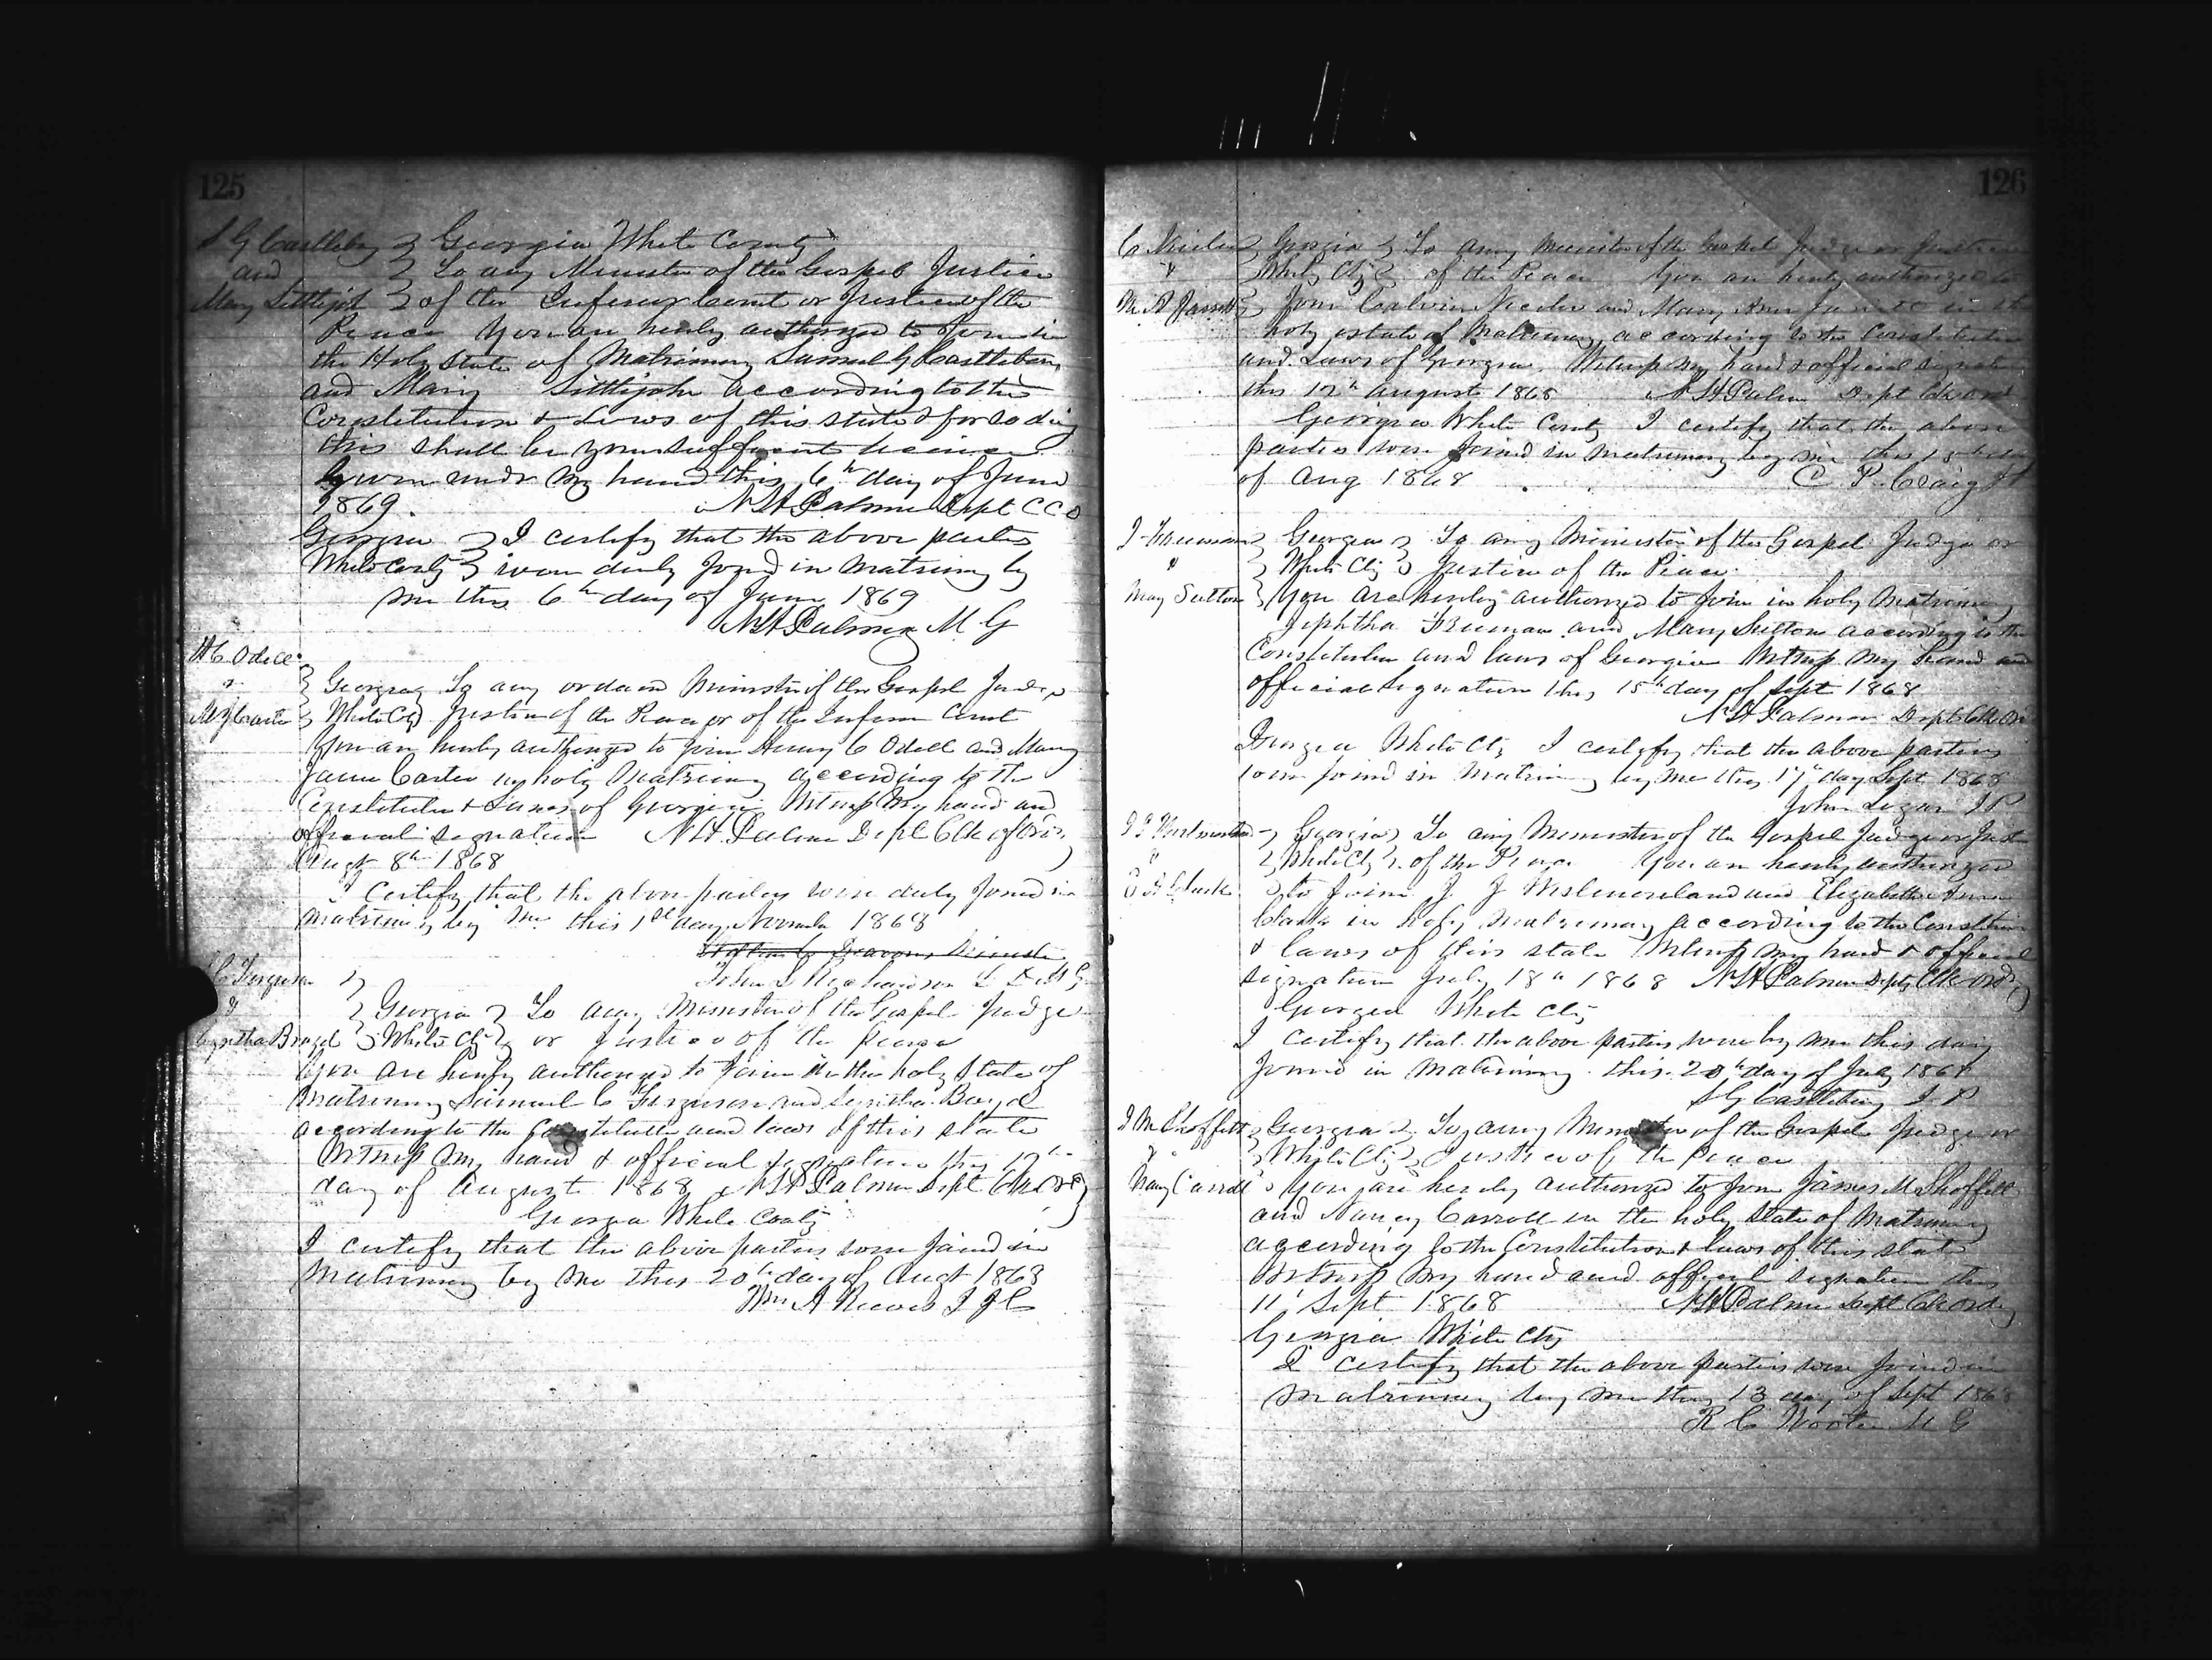 125
S G Castleberry } Georgia White County
and } To any Minister of the Gospel Justice
Mary Littlejoh } of the Inferior Court or Justice of the
Peace You are herely authorized to Join in
the Holy State of Matrimony Samuel G Castleberry
and Mary Littlejohn according to the
Constitution & Laws of this state & for so doing
this shall be your sufficient license
Given under my hand this 6th day of June
1869. N H Palmer Dept C C O
Georgia } I certify that the above parties
White Conty } were duly Joined in Matrimony by
me this 6th day of June 1869
N H Palmer M G
H C Odell
& } Georgia } To any ordaind Minister of the Gospel Judge
M J Carter } White Cty } Justice of the Peace or of the Inferior Court
You are herely authorized to join Henry C Odell and Mary
Jane Carter in holy Matrimony according to the
Constitution & Laws of Georgia Witness My hand and
official signature N H Palmer Dept Clk of Ord
Augt 8th 1868
I Certify that the above parties were duly Joined in
matrimony by me this 1st day Novembr 1868
John S Richardson
S C Ferguson }
& } Georgia } To any Minister of the Gospel Judge
Boyd } White Cty } or Justice of the Peace
You are hereby authorized to Join in the holy State of
Matrimony Samuel C Ferguson and Boyd
according to the Constitution and laws of this state
Witness my hand & official signature this 12th
day of August 1868 N H Palmer Dept Clk Ord
Georgia White Conty
I certify that the above parties were Joined in
Matrimony by me this 20th day of Augt 1868
Wm A J I C
126
C } Georgia } To any Minister of the Gospel Judge or Justice
& } White Cty } of the Peace You are herely authorized to
M A Jarrett } Join Calvin and Mary Ann Jarrett in the
holy estate of Matrimony according to the Constitution
and Laws of Georgia. Witness my hand & official signature
this 12th August 1868 N H Palmer Dept Clk Ord
Georgia White County I certify that the above
parties were Joined in matrimony by me this day
of Aug 1868 C P Craig J P
J Freeman } Georgia } To any Minister of the Gospel Judge or
& } White Cty } Justice of the Peace.
Mary Sutton } You are hereby authorized to Join in holy Matrimony
Jephtha Freeman and Mary Sutton according to the
Constitution and laws of Georgia Witness my hand and
official signature this 15th day of Sept 1868
N H Palmer Dept Clk Ord
Georgia White Cty I certify that the above parties
were Joined in Matrimony by me this 17th day Sept 1868
John Logan J P
J J Westmoreland } Georgia } To any Minister of the Gospel Judge or Just
& } White Cty } of the Peace You are hereby authorized
E A Clark } to Join J J Westmoreland and Elizabeth Ann
Clark in holy matrimony according to the Constitution
& laws of this state Witness my hand & official
signature July 18th 1868 N H Palmer Dept Clk Ord
Georgia White Cty
I certify that the above parties were by me this day
Joined in Matrimony this 20th day of July 1868
S G Castleberry J P
J M Shoffett } Georgia } To any Minister of the Gospel Judge or
& } White Cty } Justice of the Peace
Nancy Carroll } You are hereby authorized to Join James M Shoffett
and Nancy Carroll in the holy State of Matrimony
according to the Constitution & laws of this state
Witness my hand and official signature this
11 Sept 1868 N H Palmer Dept Clk Ord
Georgia White Cty
I certify that the above parties were Joined in
matrimony by me this 13 day of Sept 1868
R C Wooten M G